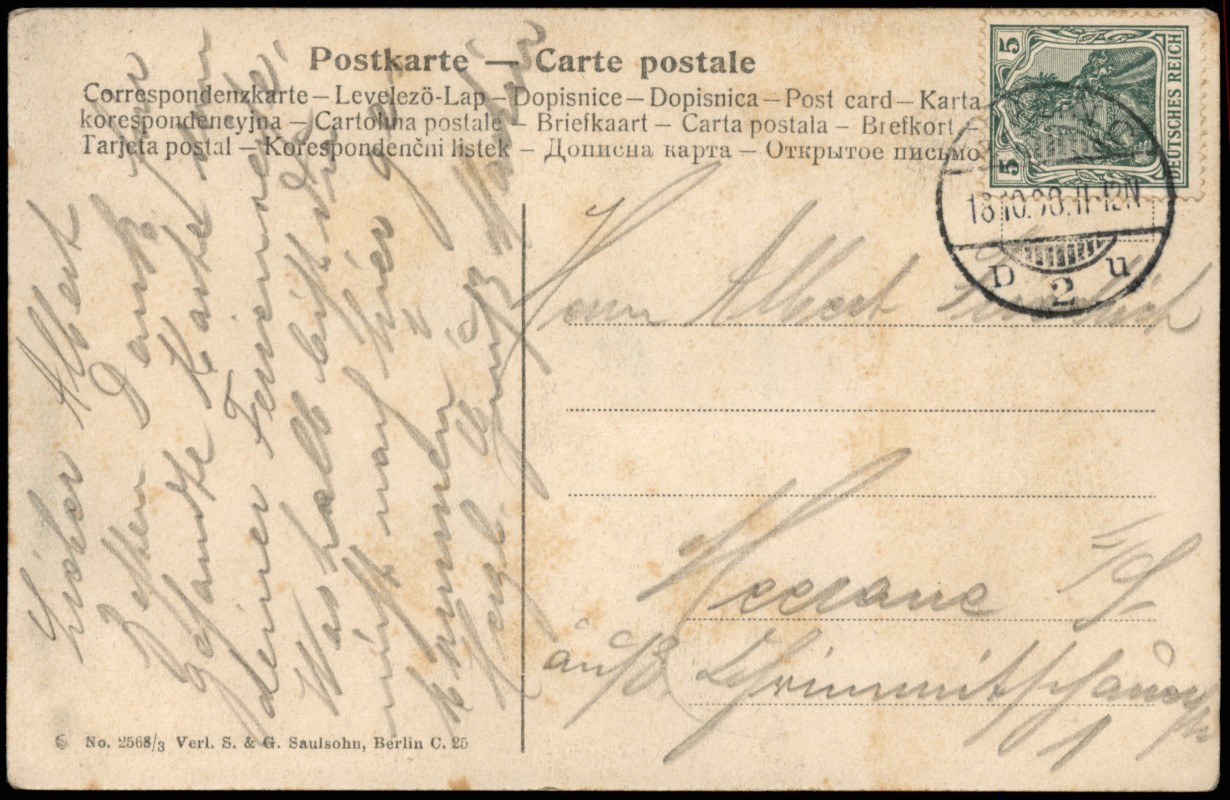 Postkarte — Carte postale
Correspondenzkarte – Levelező-Lap – Dopisnice – Dopisnica – Post card – Karta
korespondencyjna – Cartolina postale – Briefkaart – Carta postala – Brefkort –
Tarjeta postal – Korespondenčni listek – Дописна карта – Открытое письмо
5 DEUTSCHES REICH 5
18.10.08.11-12N
2
Lieber Albert
Besten Dank für
gesandte Karte von
deiner
Weshalb bist du
nicht nach hier ge
kommen
Herrn Albert
Meerane i/S
äuß. Crimmitschauerstr
1
No. 2568/3 Verl. S. & G. Saulsohn, Berlin C. 25